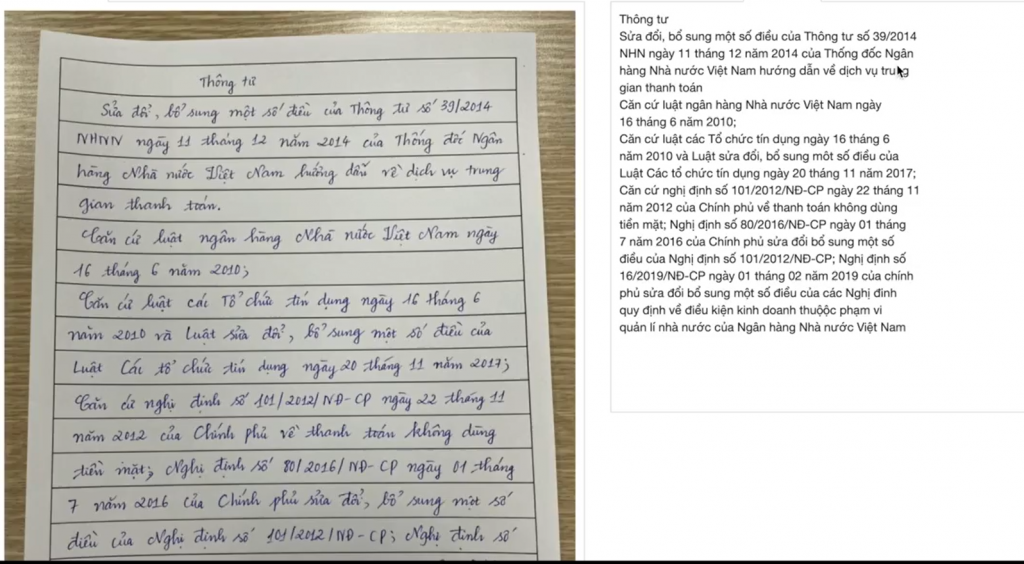 Thông tư
Sửa đổi, bổ sung một số điều của Thông tư số 39/2014
NHNN ngày 11 tháng 12 năm 2014 của Thống đốc Ngân
hàng Nhà nước Việt Nam hướng dẫn về dịch vụ trung
gian thanh toán.
Căn cứ luật ngân hàng Nhà nước Việt Nam ngày
16 tháng 6 năm 2010;
Căn cứ luật các Tổ chức tín dụng ngày 16 tháng 6
năm 2010 và Luật sửa đổi, bổ sung một số điều của
Luật Các tổ chức tín dụng ngày 20 tháng 11 năm 2017;
Căn cứ nghị định số 101/2012/NĐ-CP ngày 22 tháng 11
năm 2012 của Chính phủ về thanh toán không dùng
tiền mặt; Nghị định số 80/2016/NĐ-CP ngày 01 tháng
7 năm 2016 của Chính phủ sửa đổi, bổ sung một số
điều của Nghị định số 101/2012/NĐ-CP; Nghị định số
Thông tư
Sửa đổi, bổ sung một số điều của Thông tư số 39/2014
NHN ngày 11 tháng 12 năm 2014 của Thống đốc Ngân
hàng Nhà nước Việt Nam hướng dẫn về dịch vụ trung
gian thanh toán
Căn cứ luật ngân hàng Nhà nước Việt Nam ngày
16 tháng 6 năm 2010;
Căn cứ luật các Tổ chức tín dụng ngày 16 tháng 6
năm 2010 và Luật sửa đổi, bổ sung môt số điều của
Luật Các tổ chức tín dụng ngày 20 tháng 11 năm 2017;
Căn cứ nghị định số 101/2012/NĐ-CP ngày 22 tháng 11
năm 2012 của Chính phủ về thanh toán không dùng
tiền mặt; Nghị định số 80/2016/NĐ-CP ngày 01 tháng
7 năm 2016 của Chính phủ sửa đổi bổ sung một số
điều của Nghị định số 101/2012/NĐ-CP; Nghị định số
16/2019/NĐ-CP ngày 01 tháng 02 năm 2019 của chính
phủ sửa đổi bổ sung một số điều của các Nghị đinh
quy định về điều kiện kinh doanh thuộộc phạm vi
quản lí nhà nước của Ngân hàng Nhà nước Việt Nam